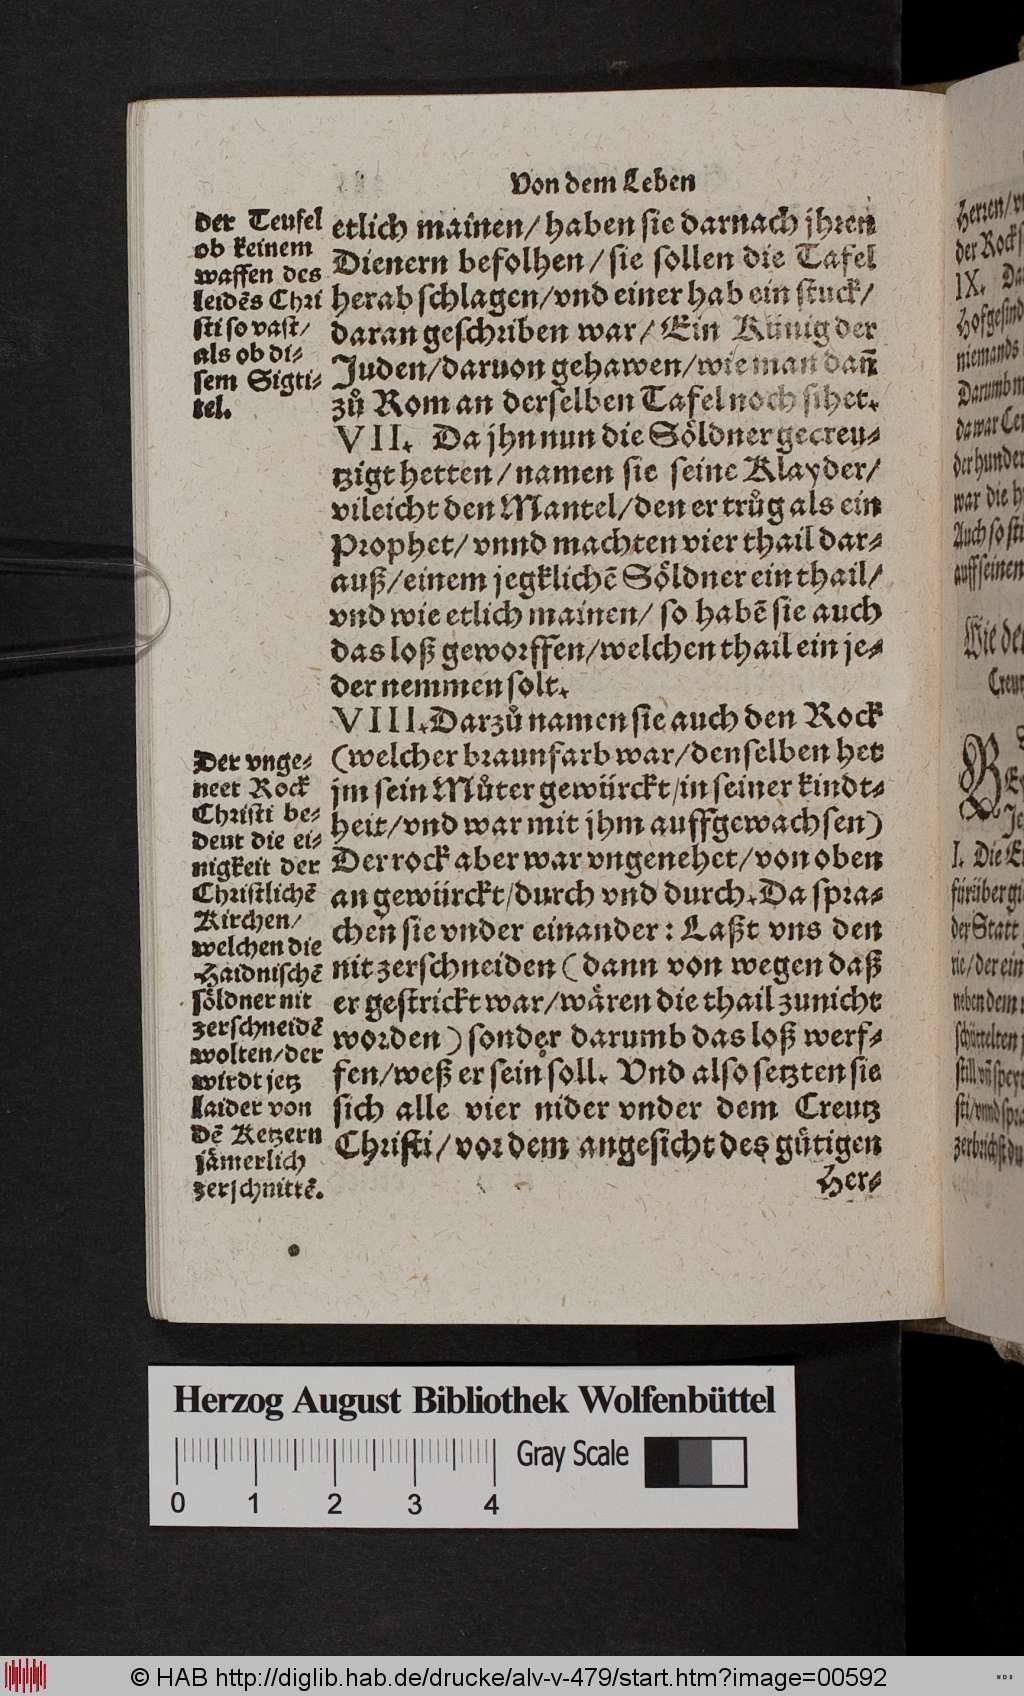 Von dem Leben
der Teufel
ob keinem
waffen des
leidēs Chri
sti so vast/
als ob di-
sem Sigti-
tel.
etlich mainen/ haben sie darnach jhren
Dienern befolhen/ sie sollen die Tafel
herab schlagen/vnd einer hab ein stuck/
daran geschriben war/ Ein Künig der
Juden/daruon gehawen/wie man dañ
zů Rom an derselben Tafel noch sihet.
VII. Da jhn nun die Söldner gecreu-
tzigt hetten/ namen sie seine Klayder/
vileicht den Mantel/den er trůg als ein
Prophet/ vnnd machten vier thail dar-
auß/einem jegklichē Söldner ein thail/
vnd wie etlich mainen/ so habē sie auch
das loß geworffen/welchen thail ein je-
der nemmen solt.
VIII. Darzů namen sie auch den Rock
(welcher braunfarb war/denselben het
jm sein Můter gewürckt/in seiner kindt-
heit/vnd war mit jhm auffgewachsen)
Der rock aber war vngenehet/von oben
an gewürckt/durch vnd durch. Da spra-
chen sie vnder einander: Laßt vns den
nit zerschneiden (dann von wegen daß
er gestrickt war/wären die thail zunicht
worden) sonder darumb das loß werf-
fen/weß er sein soll. Vnd also setzten sie
sich alle vier nider vnder dem Creutz
Christi/ vor dem angesicht des gütigen
Her-
Der vnge-
neet Rock
Christi be-
deut die ei-
nigkeit der
Christlichē
Kirchen/
welchen die
Haidnischē
söldner nit
zerschneidē
wolten/der
wirdt jetz
laider von
dē Ketzern
jämerlich
zerschnittē.
Herren/
der Rock
IX. Da
Hofgesind
niemands
Darumb
da war
der hunder
war die
Auch so
auff seinen
Wie der
Creu
I. Die
fürüber
der Statt
rie/der ein
neben dem
schüttelten
zerbrichst du
Herzog August Bibliothek Wolfenbüttel
Gray Scale
0 1 2 3 4
© HAB http://diglib.hab.de/drucke/alv-v-479/start.htm?image=00592